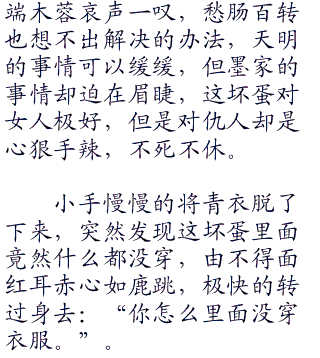 端木蓉哀声一叹，愁肠百转
也想不出解决的办法，天明
的事情可以缓缓，但墨家的
事情却迫在眉睫，这坏蛋对
女人极好，但是对仇人却是
心狠手辣，不死不休。
小手慢慢的将青衣脱了
下来，突然发现这坏蛋里面
竟然什么都没穿，由不得面
红耳赤心如鹿跳，极快的转
过身去：“你怎么里面没穿
衣服。”。